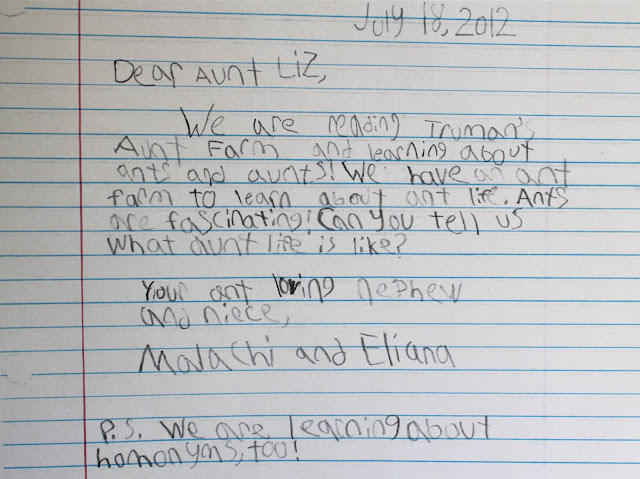 July 18, 2012
Dear Aunt Liz,
We are reading Truman's
Aunt Farm and learning about
ants and aunts! We have an ant
farm to learn about ant life. Ants
are fascinating! Can you tell us
what aunt life is like?
Your ant loving nephew
and niece,
Malachi and Eliana
P.S. We are learning about
homonyms, too!